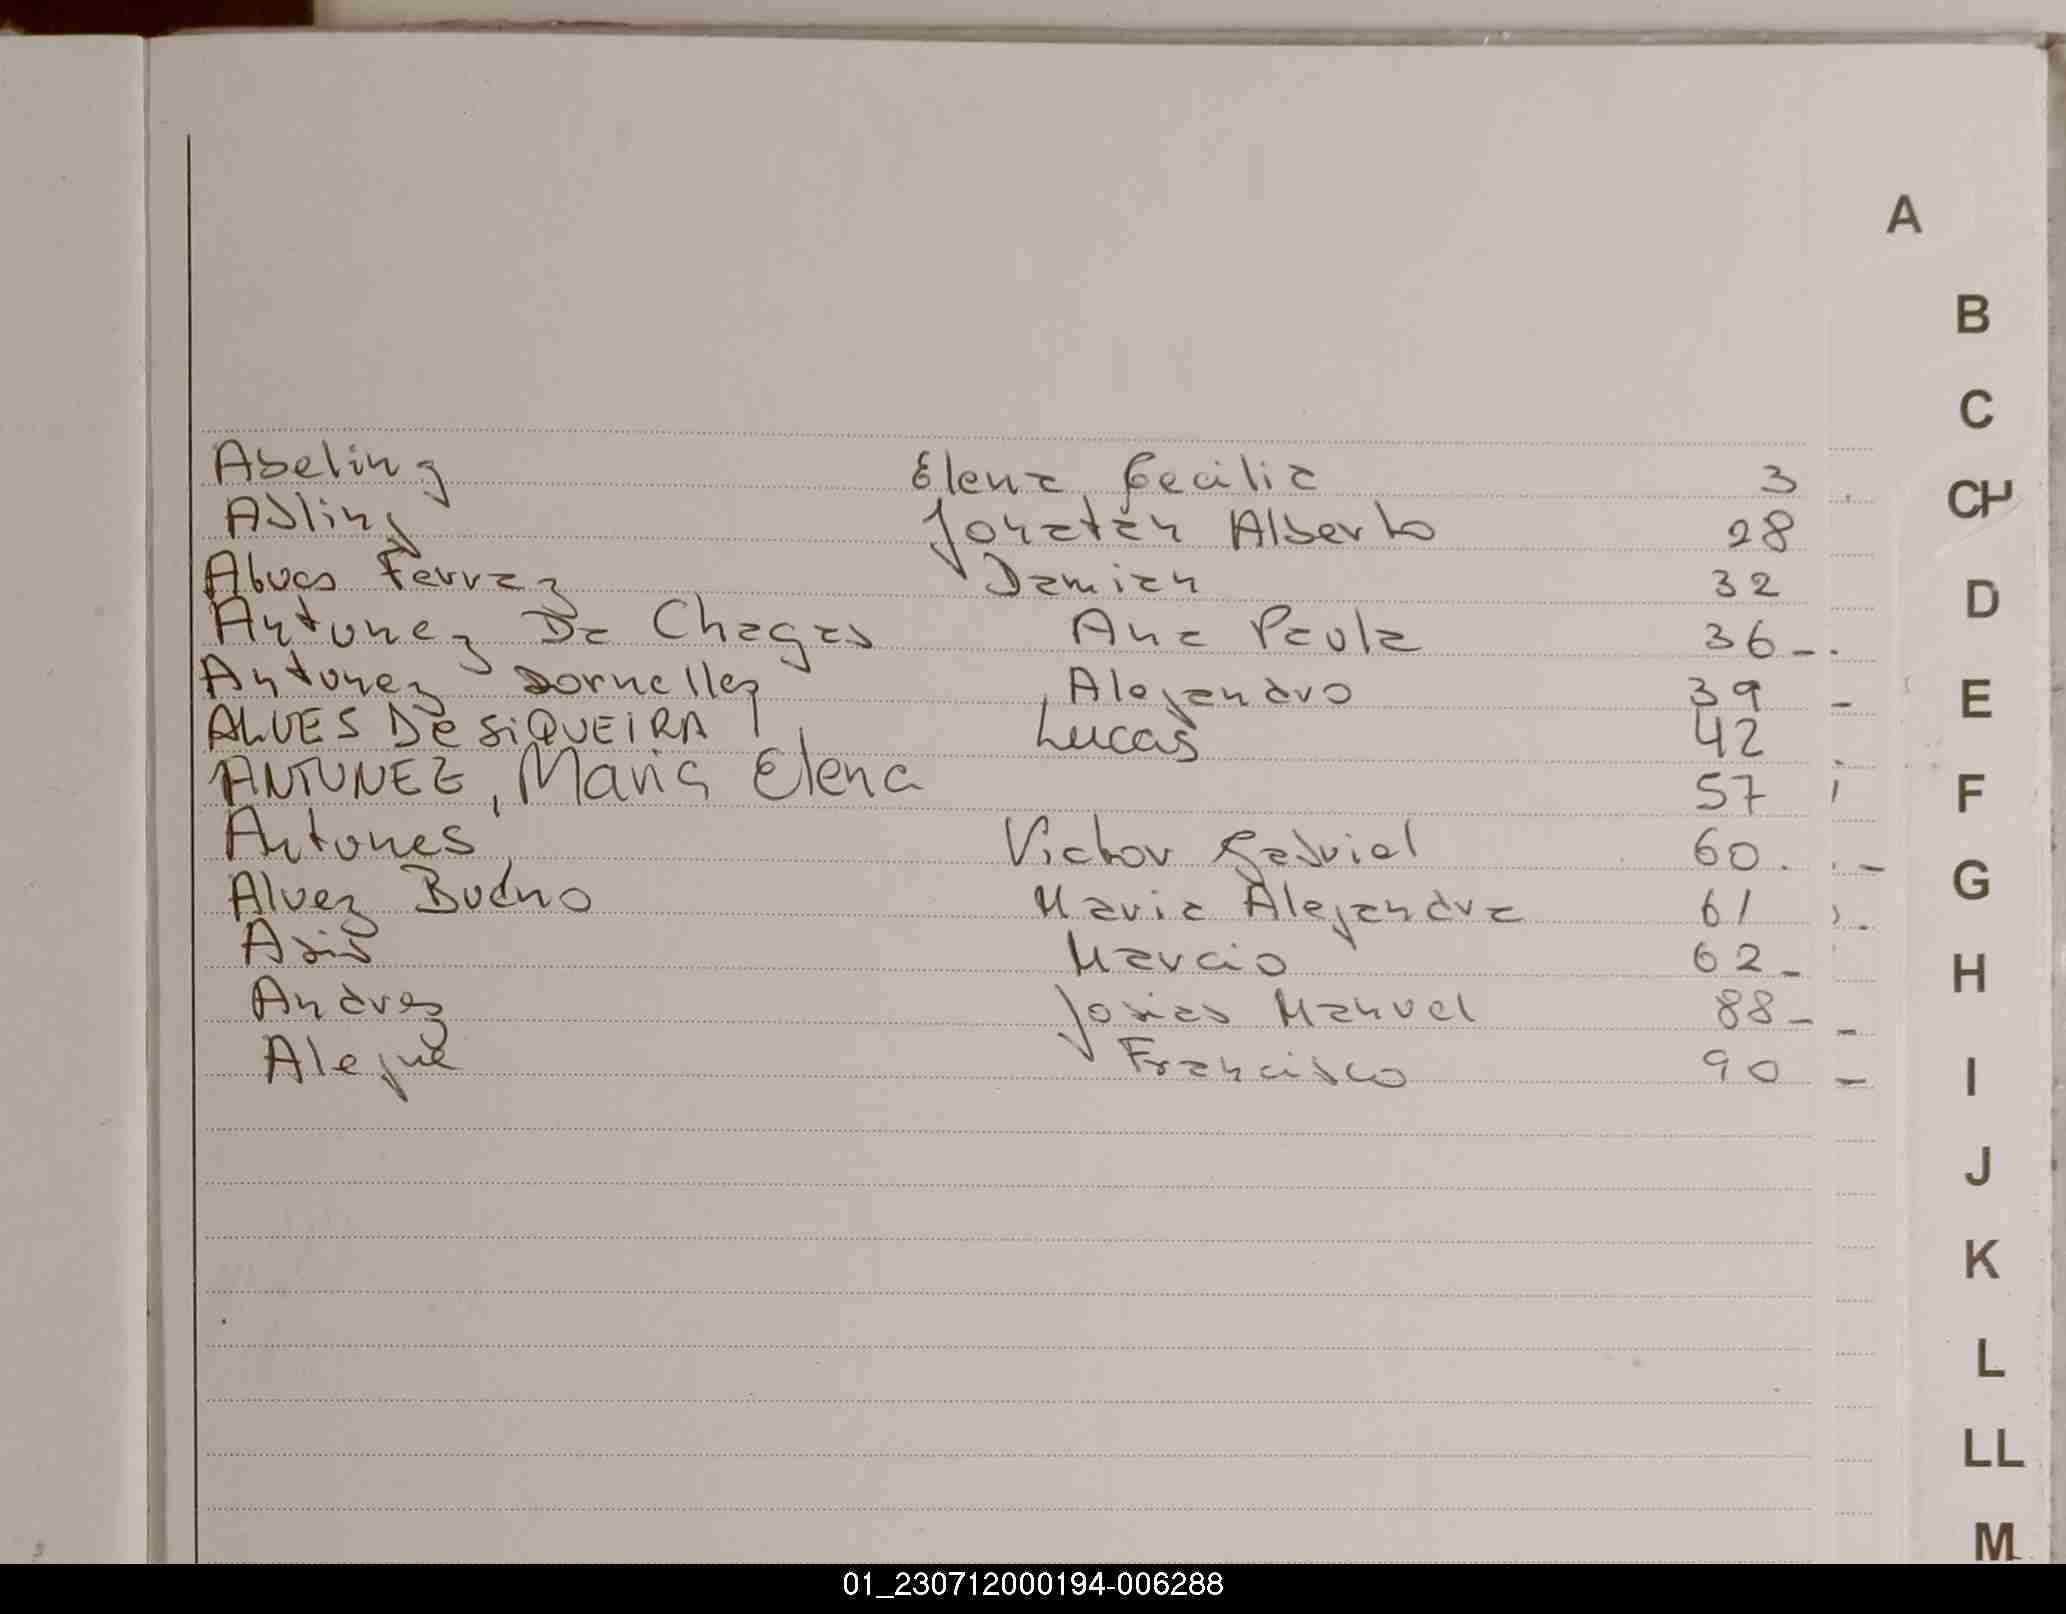 A
B
C
CH
D
E
F
G
H
I
J
K
L
LL
M
Abeling Elena Cecilia 3
Abling Jonatan Alberto 28
Alves Ferraz Damian 32
Antunez Da Chagas Ana Paula 36 -
Antunez Dornelles Alejandro 39 -
ALVES De SiQUEIRA Lucas 42
ANTUNEZ, Maria Elena 57
Antunes Victor Gabriel 60 . -
Alvez Bueno Maria Alejandra 61
Asis Marcio 62 -
Andrez Josias Manuel 88 - -
Francisco 90 -
01_230712000194-006288